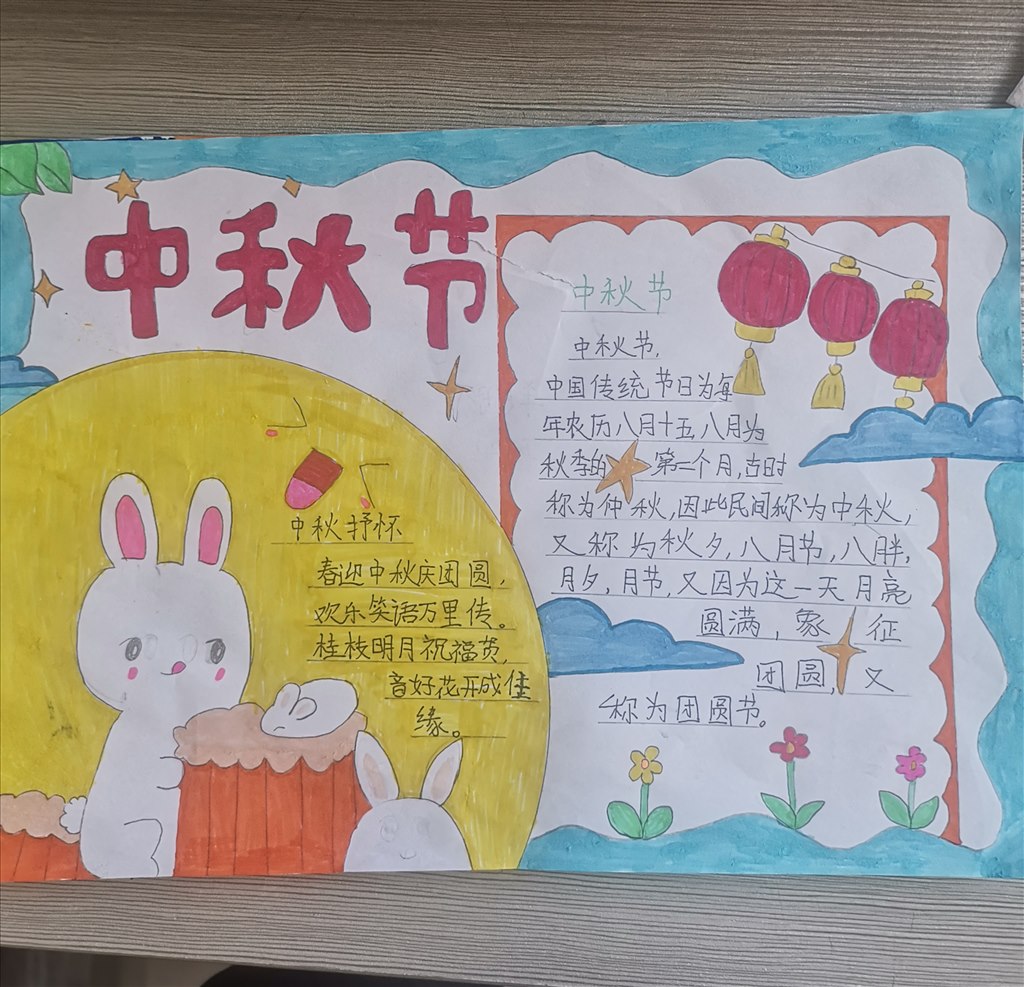 中秋节
中秋抒怀
春迎中秋庆团圆,
欢乐笑语万里传。
桂枝明月祝福
音好花开成佳
缘。
中秋节
中秋节,
中国传统节日为每
年农历八月十五,八月为
秋季的第二个月,古时
称为仲秋,因此民间称为中秋,
又称为秋夕,八月节,八胖,
月夕,月节,又因为这一天月亮
圆满,象征
团圆,又
称为团圆节。